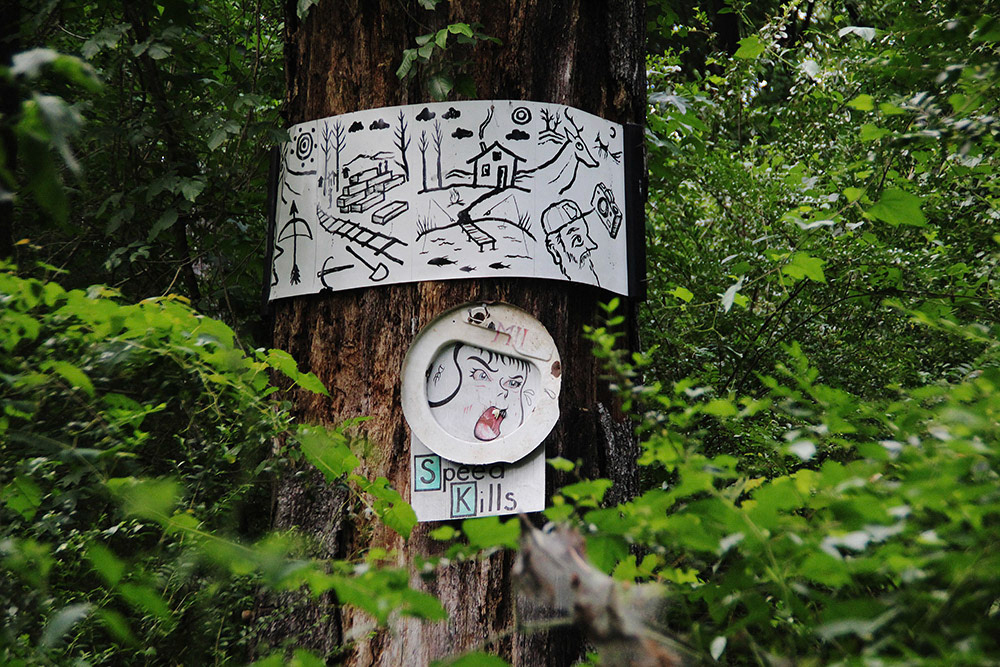 Speed
Kills